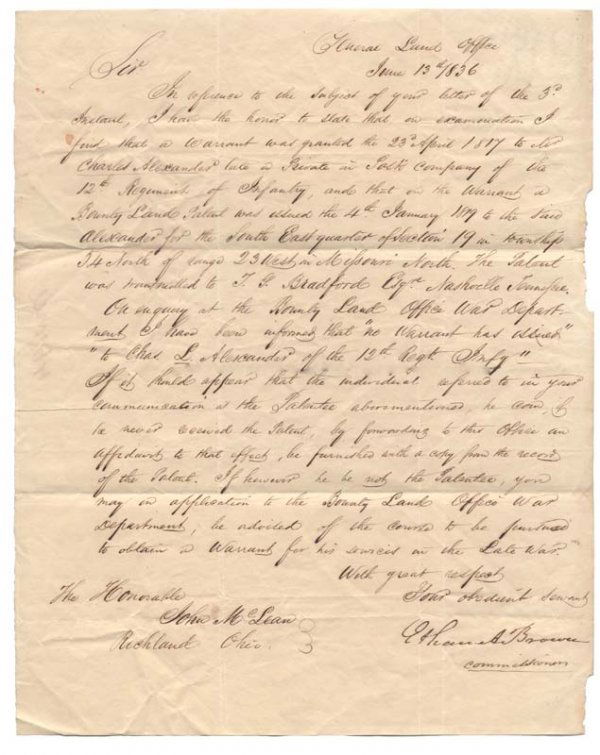 General Land Office
June 13th 1836
Sir
In reference to the subject of your letter of the 3d
Instant, I have the honor to state that on examination I
find that a Warrant was granted the 23d April 1817 to
Charles Alexander late a Private in Polk Company of the
12th Regiment of Infantry, and that on the Warrant a
Bounty Land Patent was issued the 4th January 1819 to the said
Alexander for the South East quarter of Section 19 in township
54 North of range 23 West, in Missouri North. The Patent
was transmitted to T. G. Bradford Esqre Nashville Tennessee.
On enquiry at the Bounty Land Office War Depart-
ment I have been informed that "no Warrant has issued"
"to Chas L. Alexander of the 12th Regt. Infy"
If it should appear that the individual referred to in your
communication is the Patentee abovementioned, he can, if
he never received the Patent, by forwarding to this Office an
affidavit to that effect, be furnished with a copy from the record
of the Patent. If however he be not the Patentee, you
may on application to the Bounty Land Office War
Department, be advised of the course to be pursued
to obtain a Warrant for his services in the Late War.
With great respect
Your obedient servant
Ethan A. Brown
commissioner
The Honorable
John McLean
Richland Ohio.